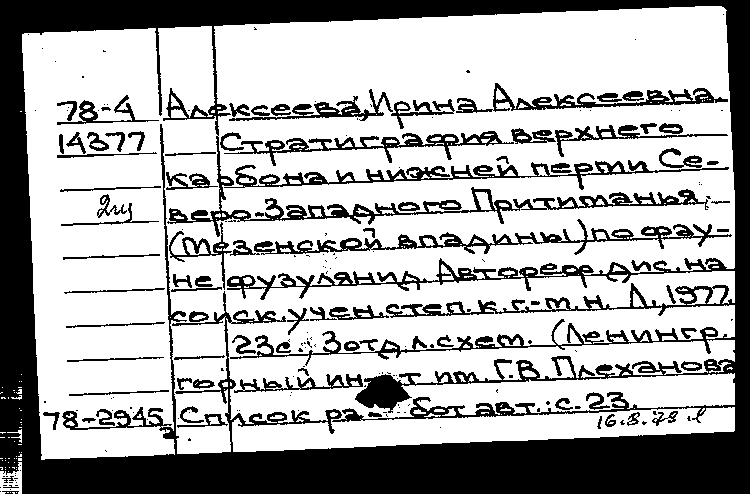 78-4 Алексеева, Ирина Алексеевна.
14377 Стратиграфия верхнего
карбона и нижней перми Се-
2щ веро-Западного Притиманья
(Мезенской впадины) по фау-
не фузулянид. Автореф. дис. на
соиск. учен. степ. к. г.-м. н. Л., 1977.
23с., 3 отд. л. схем. (Ленингр.
горный ин-т им. Г.В. Плеханова
78-2945 Список ра- бот авт.: с. 23.
2 16.3.78